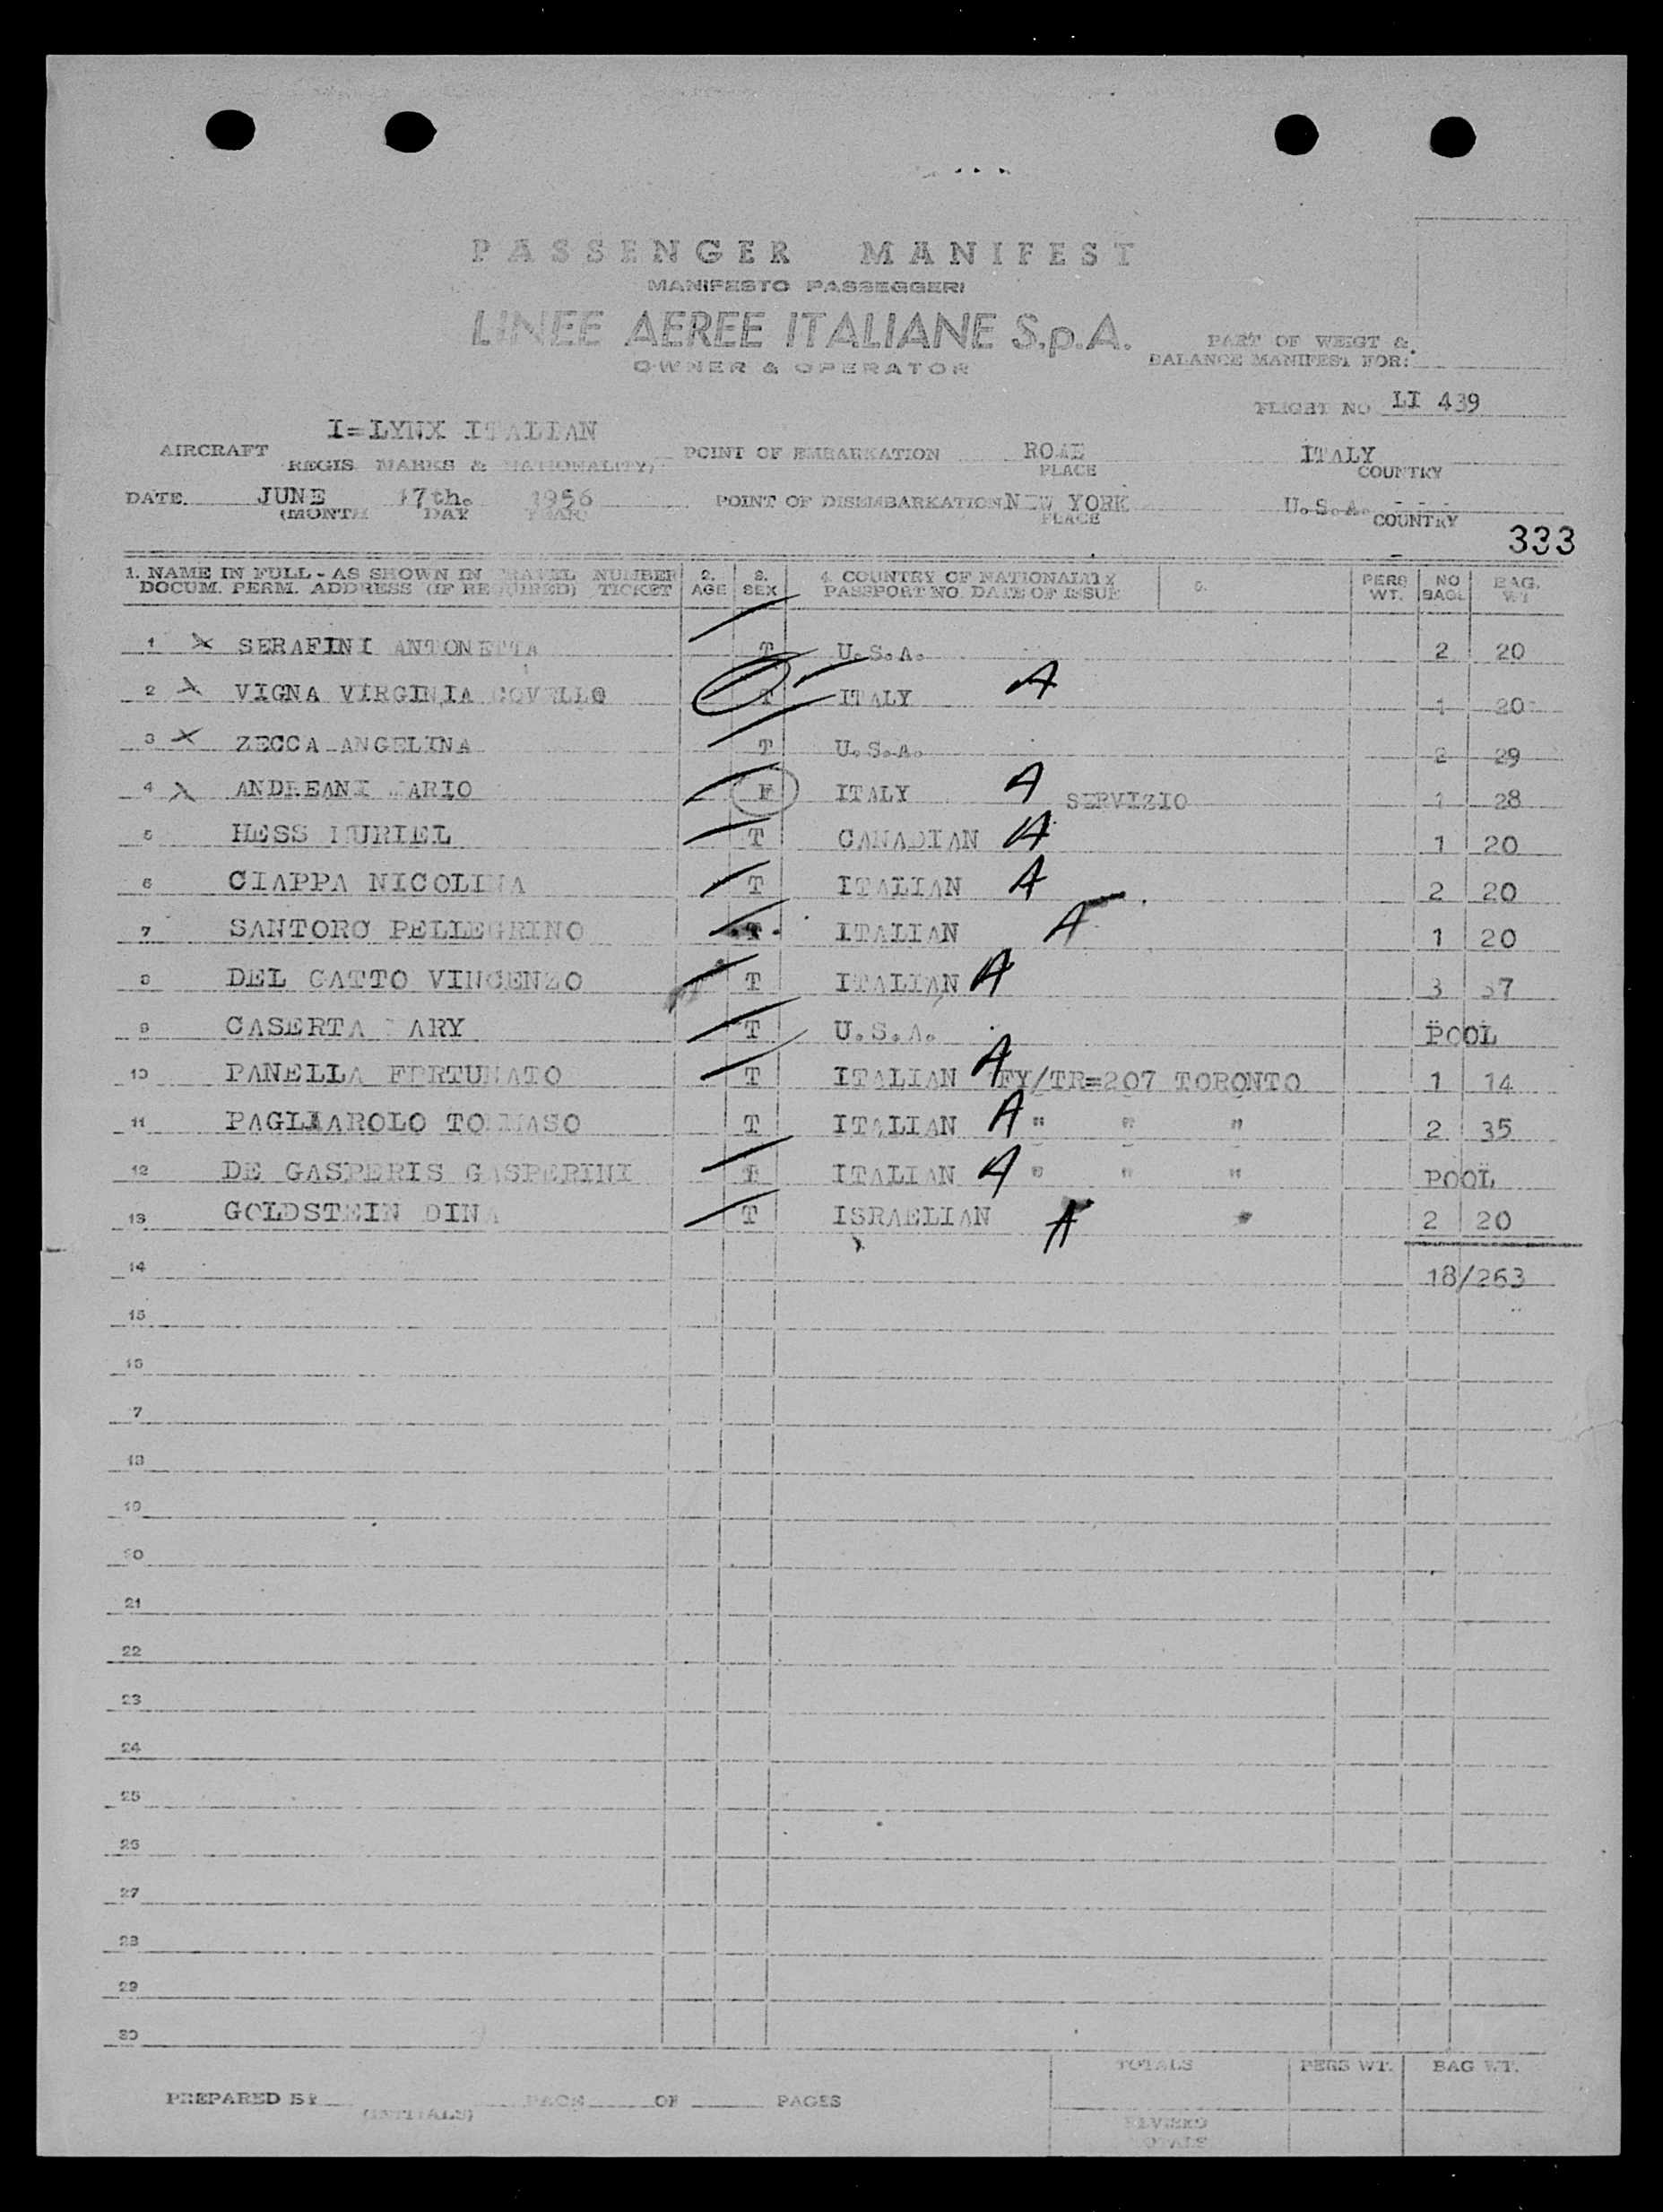 PASSENGER MANIFEST
MANIFESTO PASSEGGERI
LINEE AEREE ITALIANE S.p.A.
OWNER & OPERATOR
PART OF WEIGT &
BALANCE MANIFEST FOR:
FLIGHT NO LI 439
I=LYNX ITALIAN
AIRCRAFT POINT OF EMBARKATION ROME ITALY
REGIS MARKS & NATIONALITY) PLACE COUNTRY
DATE JUNE 17th. 1956 POINT OF DISEMBARKATION NEW YORK U.S.A. - - -
(MONTH DAY YEAR) PLACE COUNTRY
333
1. NAME IN FULL - AS SHOWN IN TRAVEL NUMBER 2. 3. 4. COUNTRY OF NATIONALITY 5. PERS NO BAG.
DOCUM. PERM. ADDRESS (IF REQUIRED) TICKET AGE SEX PASSPORT NO. DATE OF ISSUE WT. BAGG WT
1 X SERAFINI ANTONETTA T U.S.A. 2 20
2 X VIGNA VIRGINIA COVELLO T ITALY A 1 20
3 X ZECCA ANGELINA T U.S.A. 2 29
4 X ANDREANI MARIO F ITALY A SERVIZIO 1 28
5 HESS MURIEL T CANADIAN A 1 20
6 CIAPPA NICOLINA T ITALIAN A 2 20
7 SANTORO PELLEGRINO T ITALIAN A 1 20
8 DEL GATTO VINCENZO T ITALIAN A 3 37
9 CASERTA MARY T U.S.A. POOL
10 PANELLA FPRTUNATO T ITALIAN A FY/TR=207 TORONTO 1 14
11 PAGLIAROLO TOMMASO T ITALIAN A " " " 2 35
12 DE GASPERIS GASPERINI T ITALIAN A " " " POOL
13 GOLDSTEIN DINA T ISRAELIAN A 2 20
14 18/263
15
16
7
18
19
20
21
22
23
24
25
26
27
28
29
30
TOTALS PERS WT. BAG WT.
PREPARED BY PAGE OF PAGES
(INITIALS)
REVISED
TOTALS